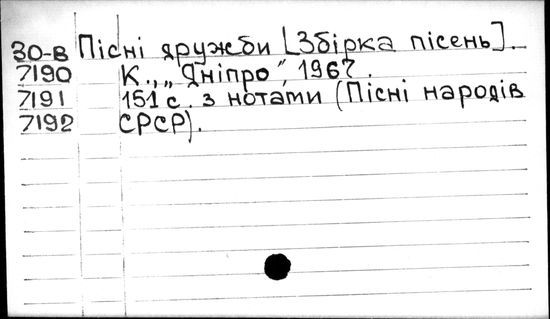 30-в Пісні дружби [Збірка пісень].
7190 К., „Дніпро", 1967.
7191 151 с. з нотами (Пісні народів
7192 СРСР).